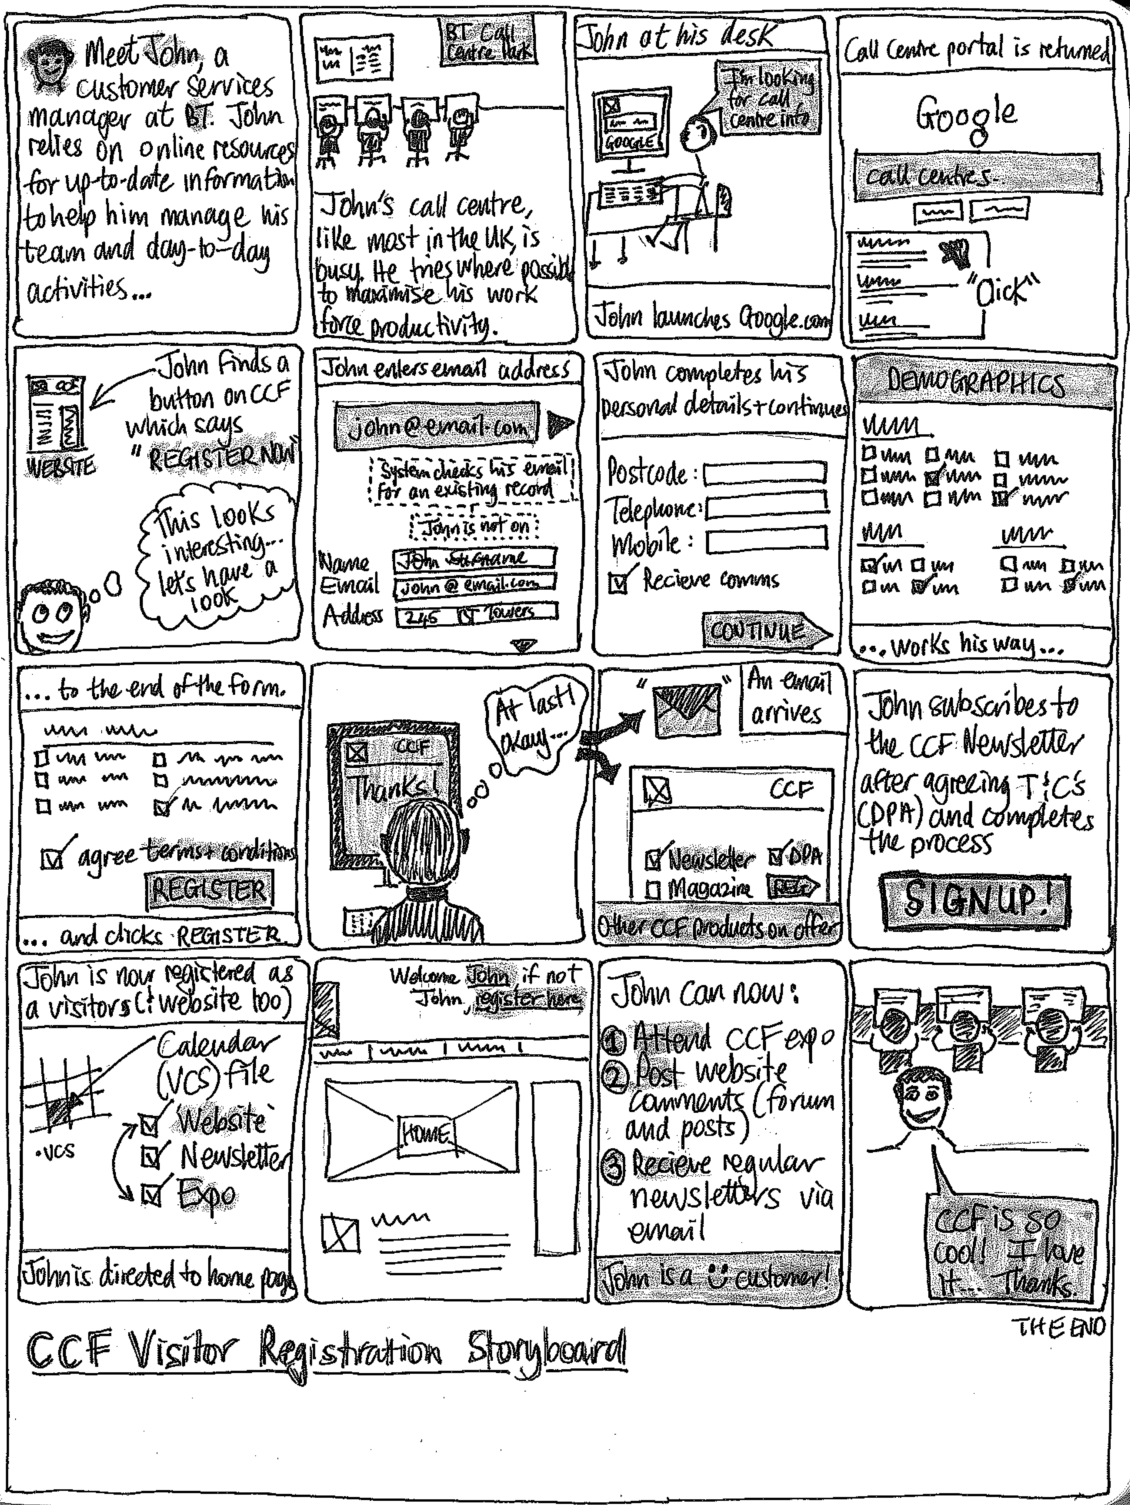 Meet John, a
customer services
manager at BT. John
relies on online resources
for up-to-date information
to help him manage his
team and day-to-day
activities...
BT Call
Centre Park
John's call centre,
like most in the UK, is
busy. He tries where possible
to maximise his work
force productivity.
John at his desk
I'm looking
for call
centre info
GOOGLE
John launches Google.com
Call Centre portal is returned
Google
call centres-
"Click"
John finds a
button on CCF
which says
"REGISTER NOW"
WEBSITE
This looks
interesting...
let's have a
look
John enters email address
john@email.com
System checks his email
for an existing record
John is not on
Name John Surname
Email john@email.com
Address 245 BT Towers
John completes his
personal details + continues
Postcode:
Telephone:
Mobile:
Recieve comms
CONTINUE
DEMOGRAPHICS
...works his way...
...to the end of the form.
agree terms + conditions
REGISTER
...and clicks REGISTER
At last!
okay...
CCF
Thanks!
An email
arrives
CCF
Newsletter DPA
Magazine
Other CCF products on offer
John subscribes to
the CCF Newsletter
after agreeing T&C's
(DPA) and completes
the process
SIGNUP!
John is now registered as
a visitors (& website too)
Calendar
(VCS) file
.VCS
Website
Newsletter
Expo
John is directed to home page
Welcome John, if not
John, register here
HOME
John can now:
1 Attend CCF expo
2 Post website
comments (forum
and posts)
3 Recieve regular
newsletters via
email
John is a customer!
CCF is so
cool! I love
it... Thanks.
THE END
CCF Visitor Registration Storyboard